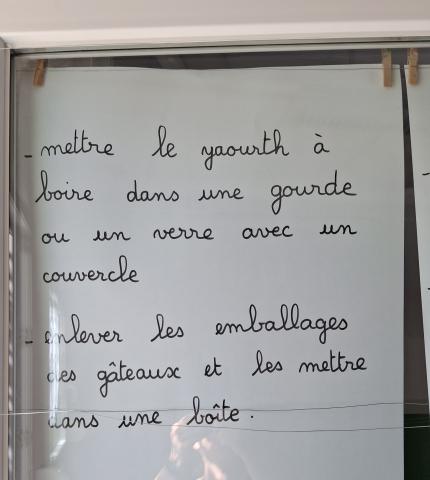 - mettre le yaourth à
boire dans une gourde
ou un verre avec un
couvercle
- enlever les emballages
des gâteaux et les mettre
dans une boîte.